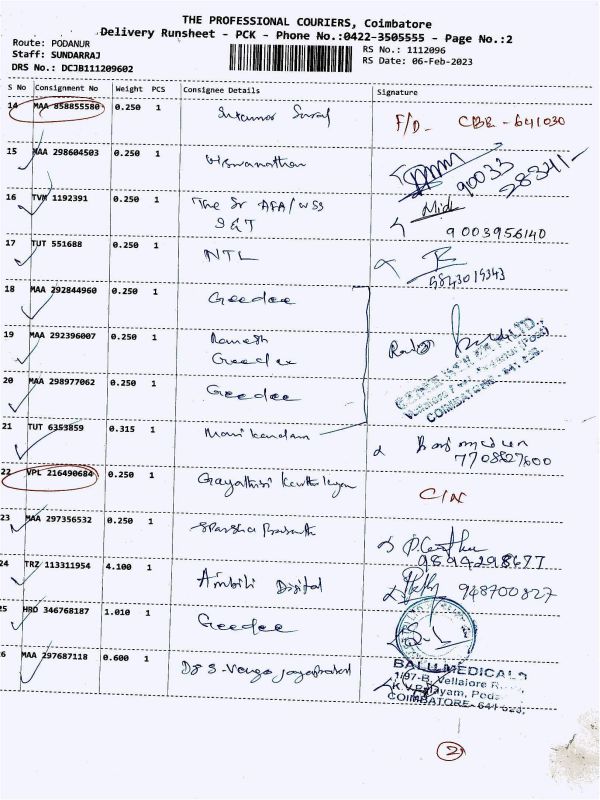 THE PROFESSIONAL COURIERS, Coimbatore
Delivery Runsheet - PCK - Phone No.:0422-3505555 - Page No.:2
Route: PODANUR
RS No.: 1112096
Staff: SUNDARRAJ
RS Date: 06-Feb-2023
DRS No.: DCJB111209602
S No Consignment No Weight PCS Consignee Details Signature
14 MAA 858855580 0.250 1 F/D- CBE - 641030
15 MAA 298604503 0.250 1 Viswanathan
90033
28341-
16 TVM 1192391 0.250 1 The Sr AFA/WSS
S&T
9003956140
17 TUT 551688 0.250 1 NTL
9843019343
18 MAA 292844960 0.250 1 Geedee
19 MAA 292396007 0.250 1 Ramesh
Geedee
20 MAA 298977062 0.250 1 Geedee
COIMBATORE - 641
21 TUT 6353859 0.315 1 Manikandam
7708827600
22 VPL 216490684 0.250 1 Gayathiri
C/N
23 MAA 297356532 0.250 1 Sparsha
9894298677
24 TRZ 113311954 4.100 1 Ambili Digital 948700827
25 HRD 346768187 1.010 1 Geedee
26 MAA 297687118 0.600 1
BALU MEDICALS
1/97-B, Vellalore
K.V.Palayam, Poda
COIMBATORE - 641 023.
2